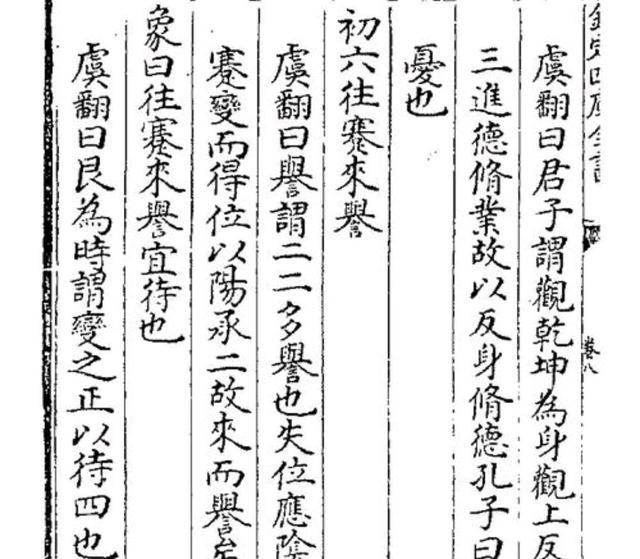 欽定四庫全書
卷八
虞翻曰君子謂觀乾坤為身觀上反
三進德脩業故以反身脩德孔子曰
憂也
初六往蹇來譽
虞翻曰譽謂二二多譽也失位應陰
蹇變而得位以陽承二故來而譽
象曰往蹇來譽宜待也
虞翻曰艮為時謂變之正以待四也